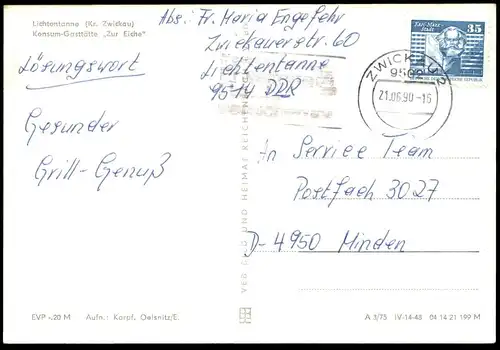 Lichtentanne (Kr. Zwickau)
Konsum-Gaststätte „Zur Eiche“
Lösungswort
Gesunder
Grill-Genuß
Abs: Fr. Maria Engefehr
Zwickauerstr. 60
Lichtentanne
9514 DDR
Karl-Marx-
Stadt
35
ZWICKAU 2
21.06.90-16
An Service Team
Postfach 3027
D-4950 Minden
VEB BILD UND HEIMAT REICHENBACH
EVP -.20 M
Aufn.: Karpf, Oelsnitz/E.
A 3/75 IV-14-45 04 14 21 199 M